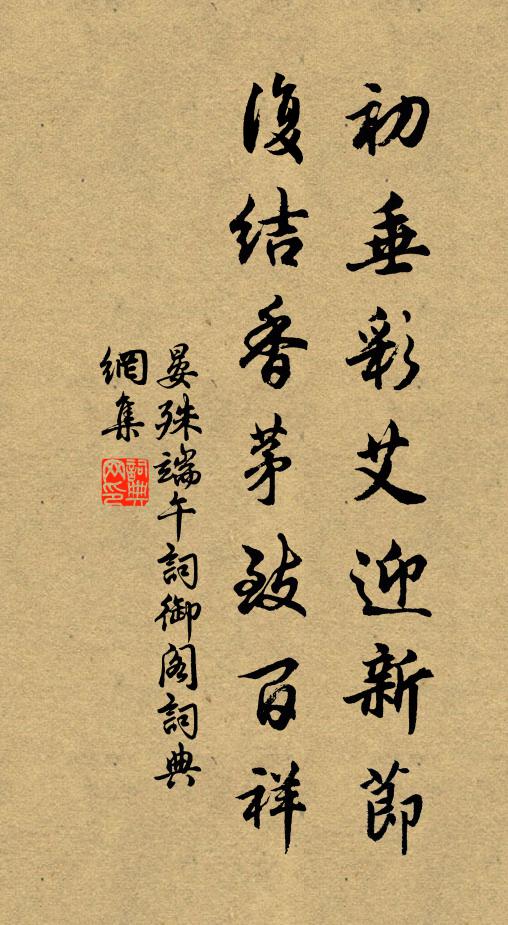 初垂彩艾迎新節
復結香茅致百祥
晏殊端午詞御閣詞典
網集
詞典網印